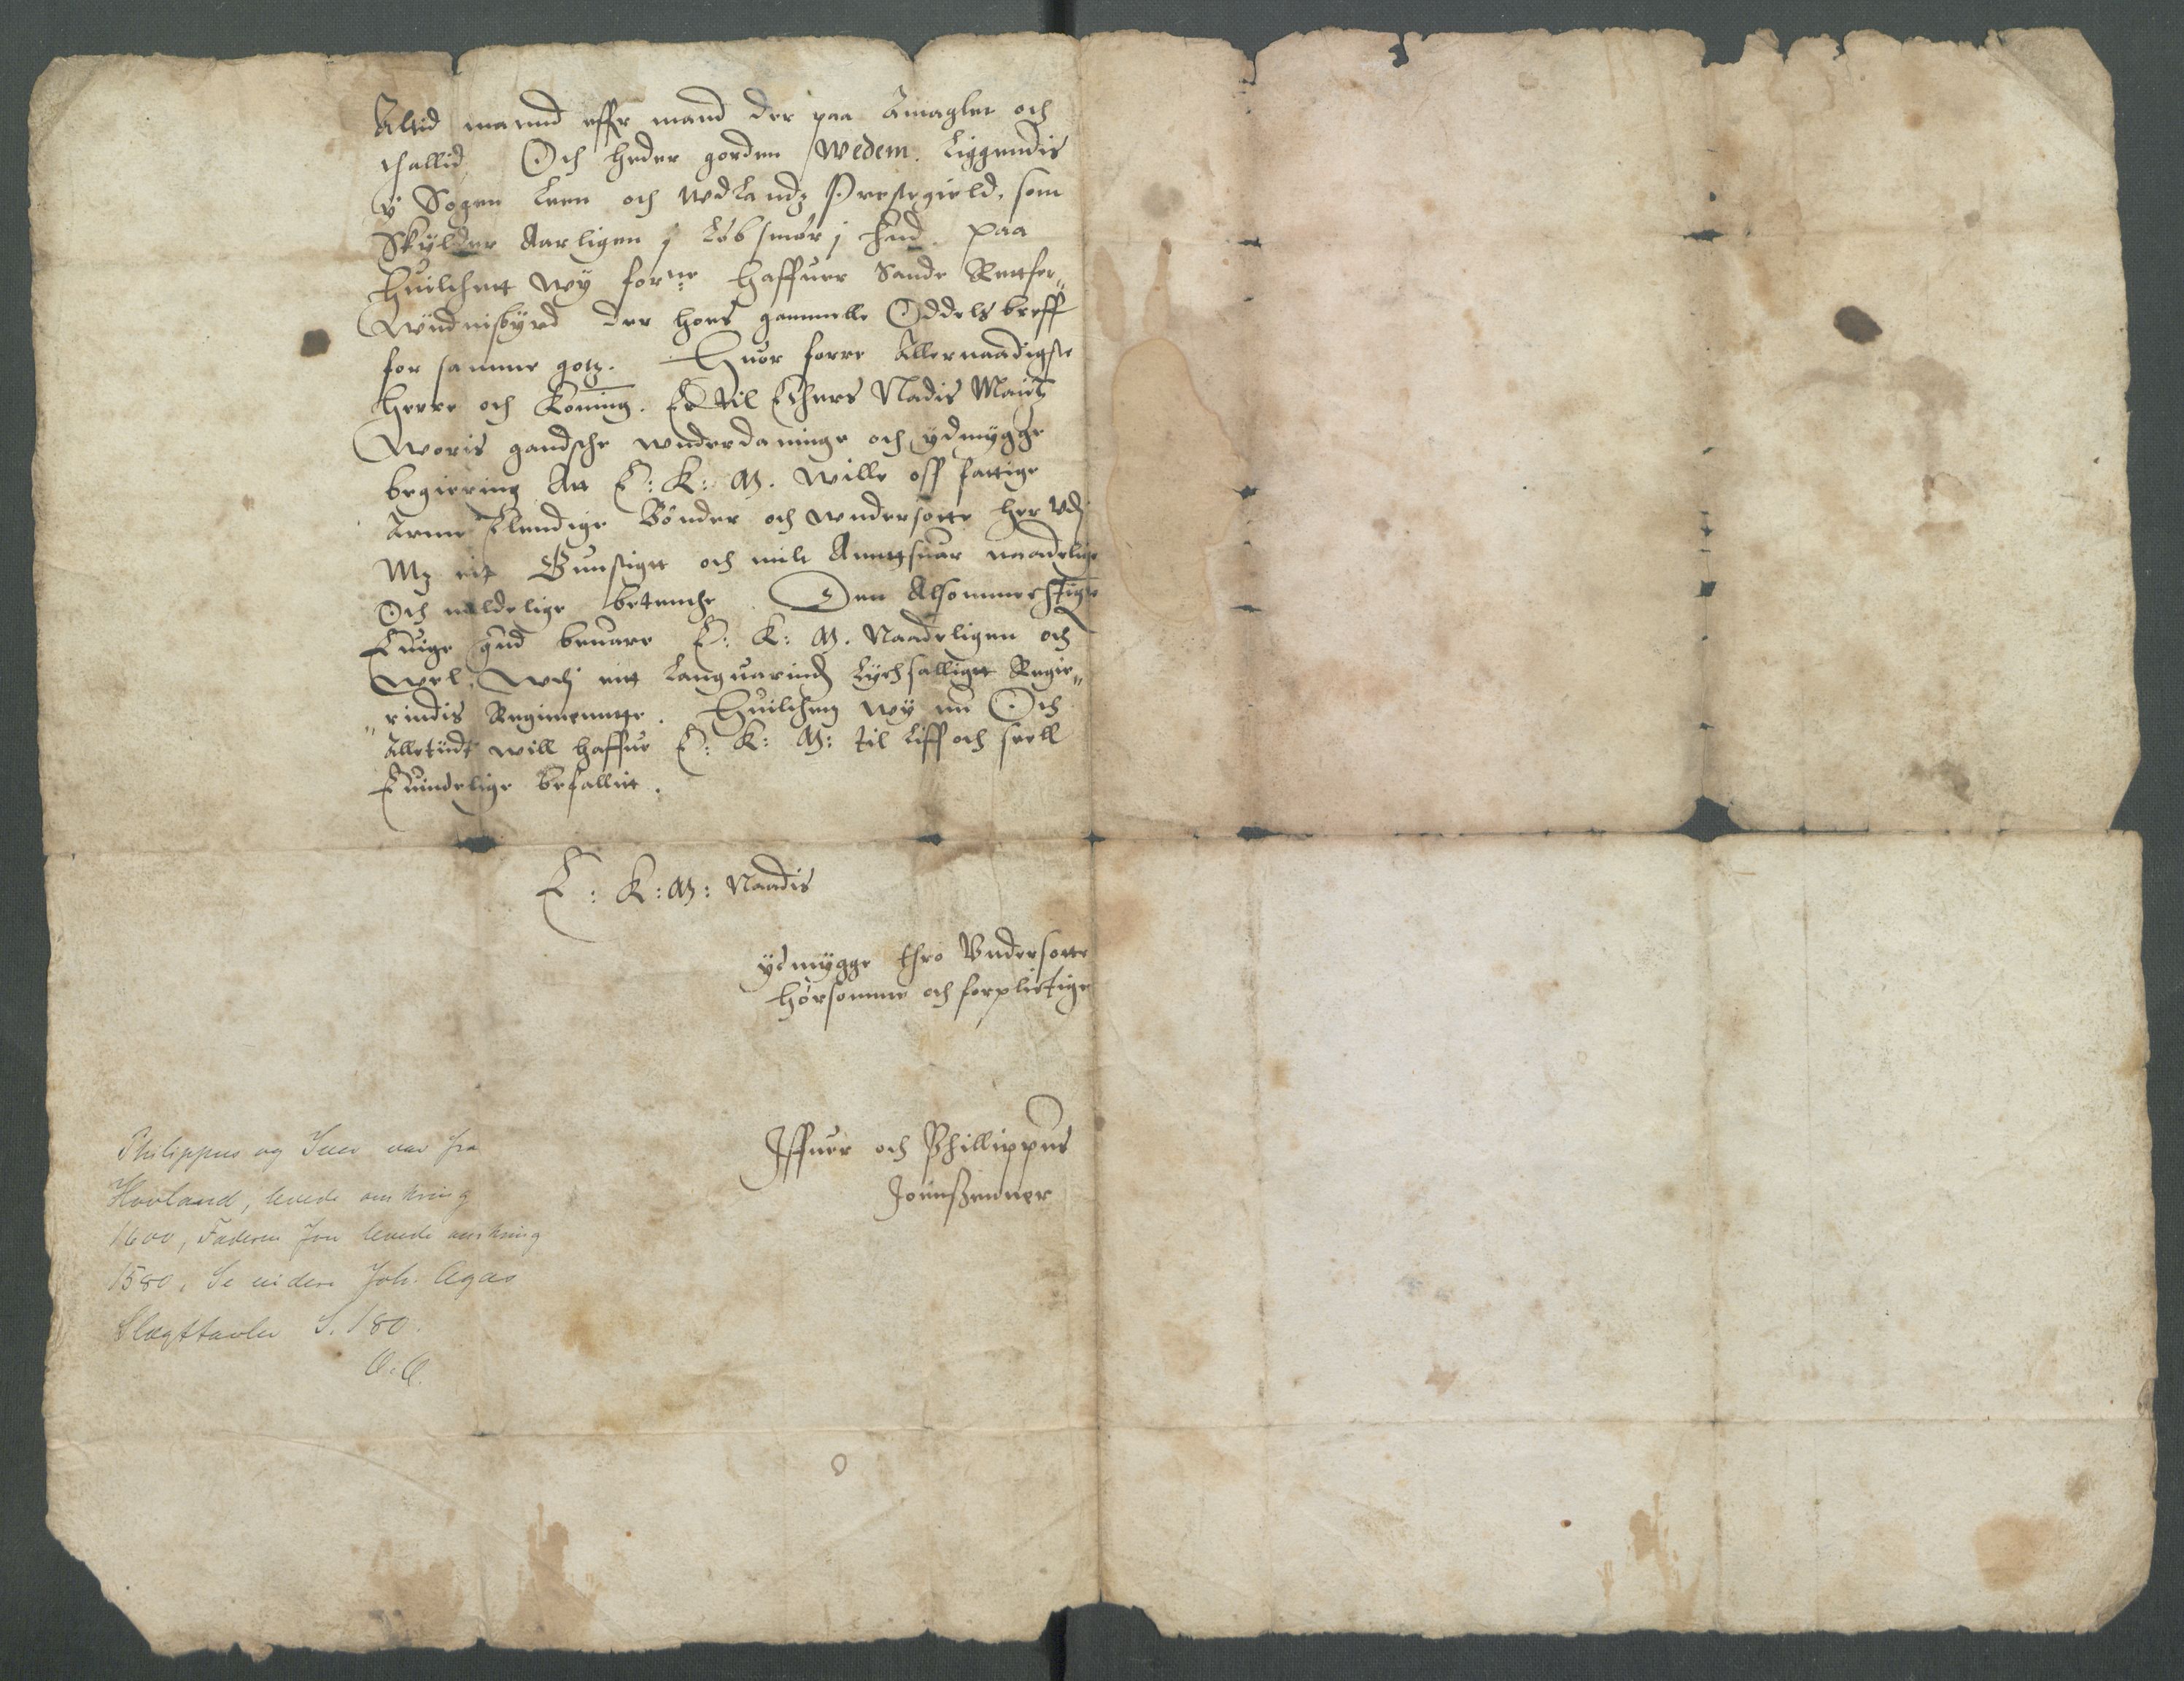 Altid mannd effter mand der paa Anagler och
challid, Och heder gorden Wedem. Liggendis
y Sogen Leen och WdLandz Prestegield, som
Skylder Aarligen j Løb smør j hud. Paa
Huilchett Wy forne haffuer Sande Rettfer„
Windnisbyrd der hoes gammelle Oddels breff
for samme gotz. Huor forre Allernaadigste
Herre och Koning. Er til Ethers Nadis Maitz
Woris gandsche wnderdaninge och ydmygge
begiering Att E: K: M. Wille oss fattige
Arme Elendige Bønder och wndersotte her Vdj
Mz eit Gunstigt och milt Anntsuar naadelige
Och mildelige betenche. Den Alsommechtigste
Euige gud beuare E: K: M. Naadeligen och
Wel, Wdj ett Languarind Lychsalligtt Regie„
„rindis Regimenntte. Huilchen Wy nu Och
Alletiidt will haffue E: K: M: til Liff och seell
Euindelige befallitt.
E: K: M: Naadis
ydmygge thro Vndersotte
Hørsomme och forplictige
Iffuer och Phillippus
Joenßenner
Philippus og Iver var fra
Hovland, levede omkring
1600, Faderen Jon levede omkring
1580. Se videre Joh. Agas
Slægttavler S. 180.
O. O.